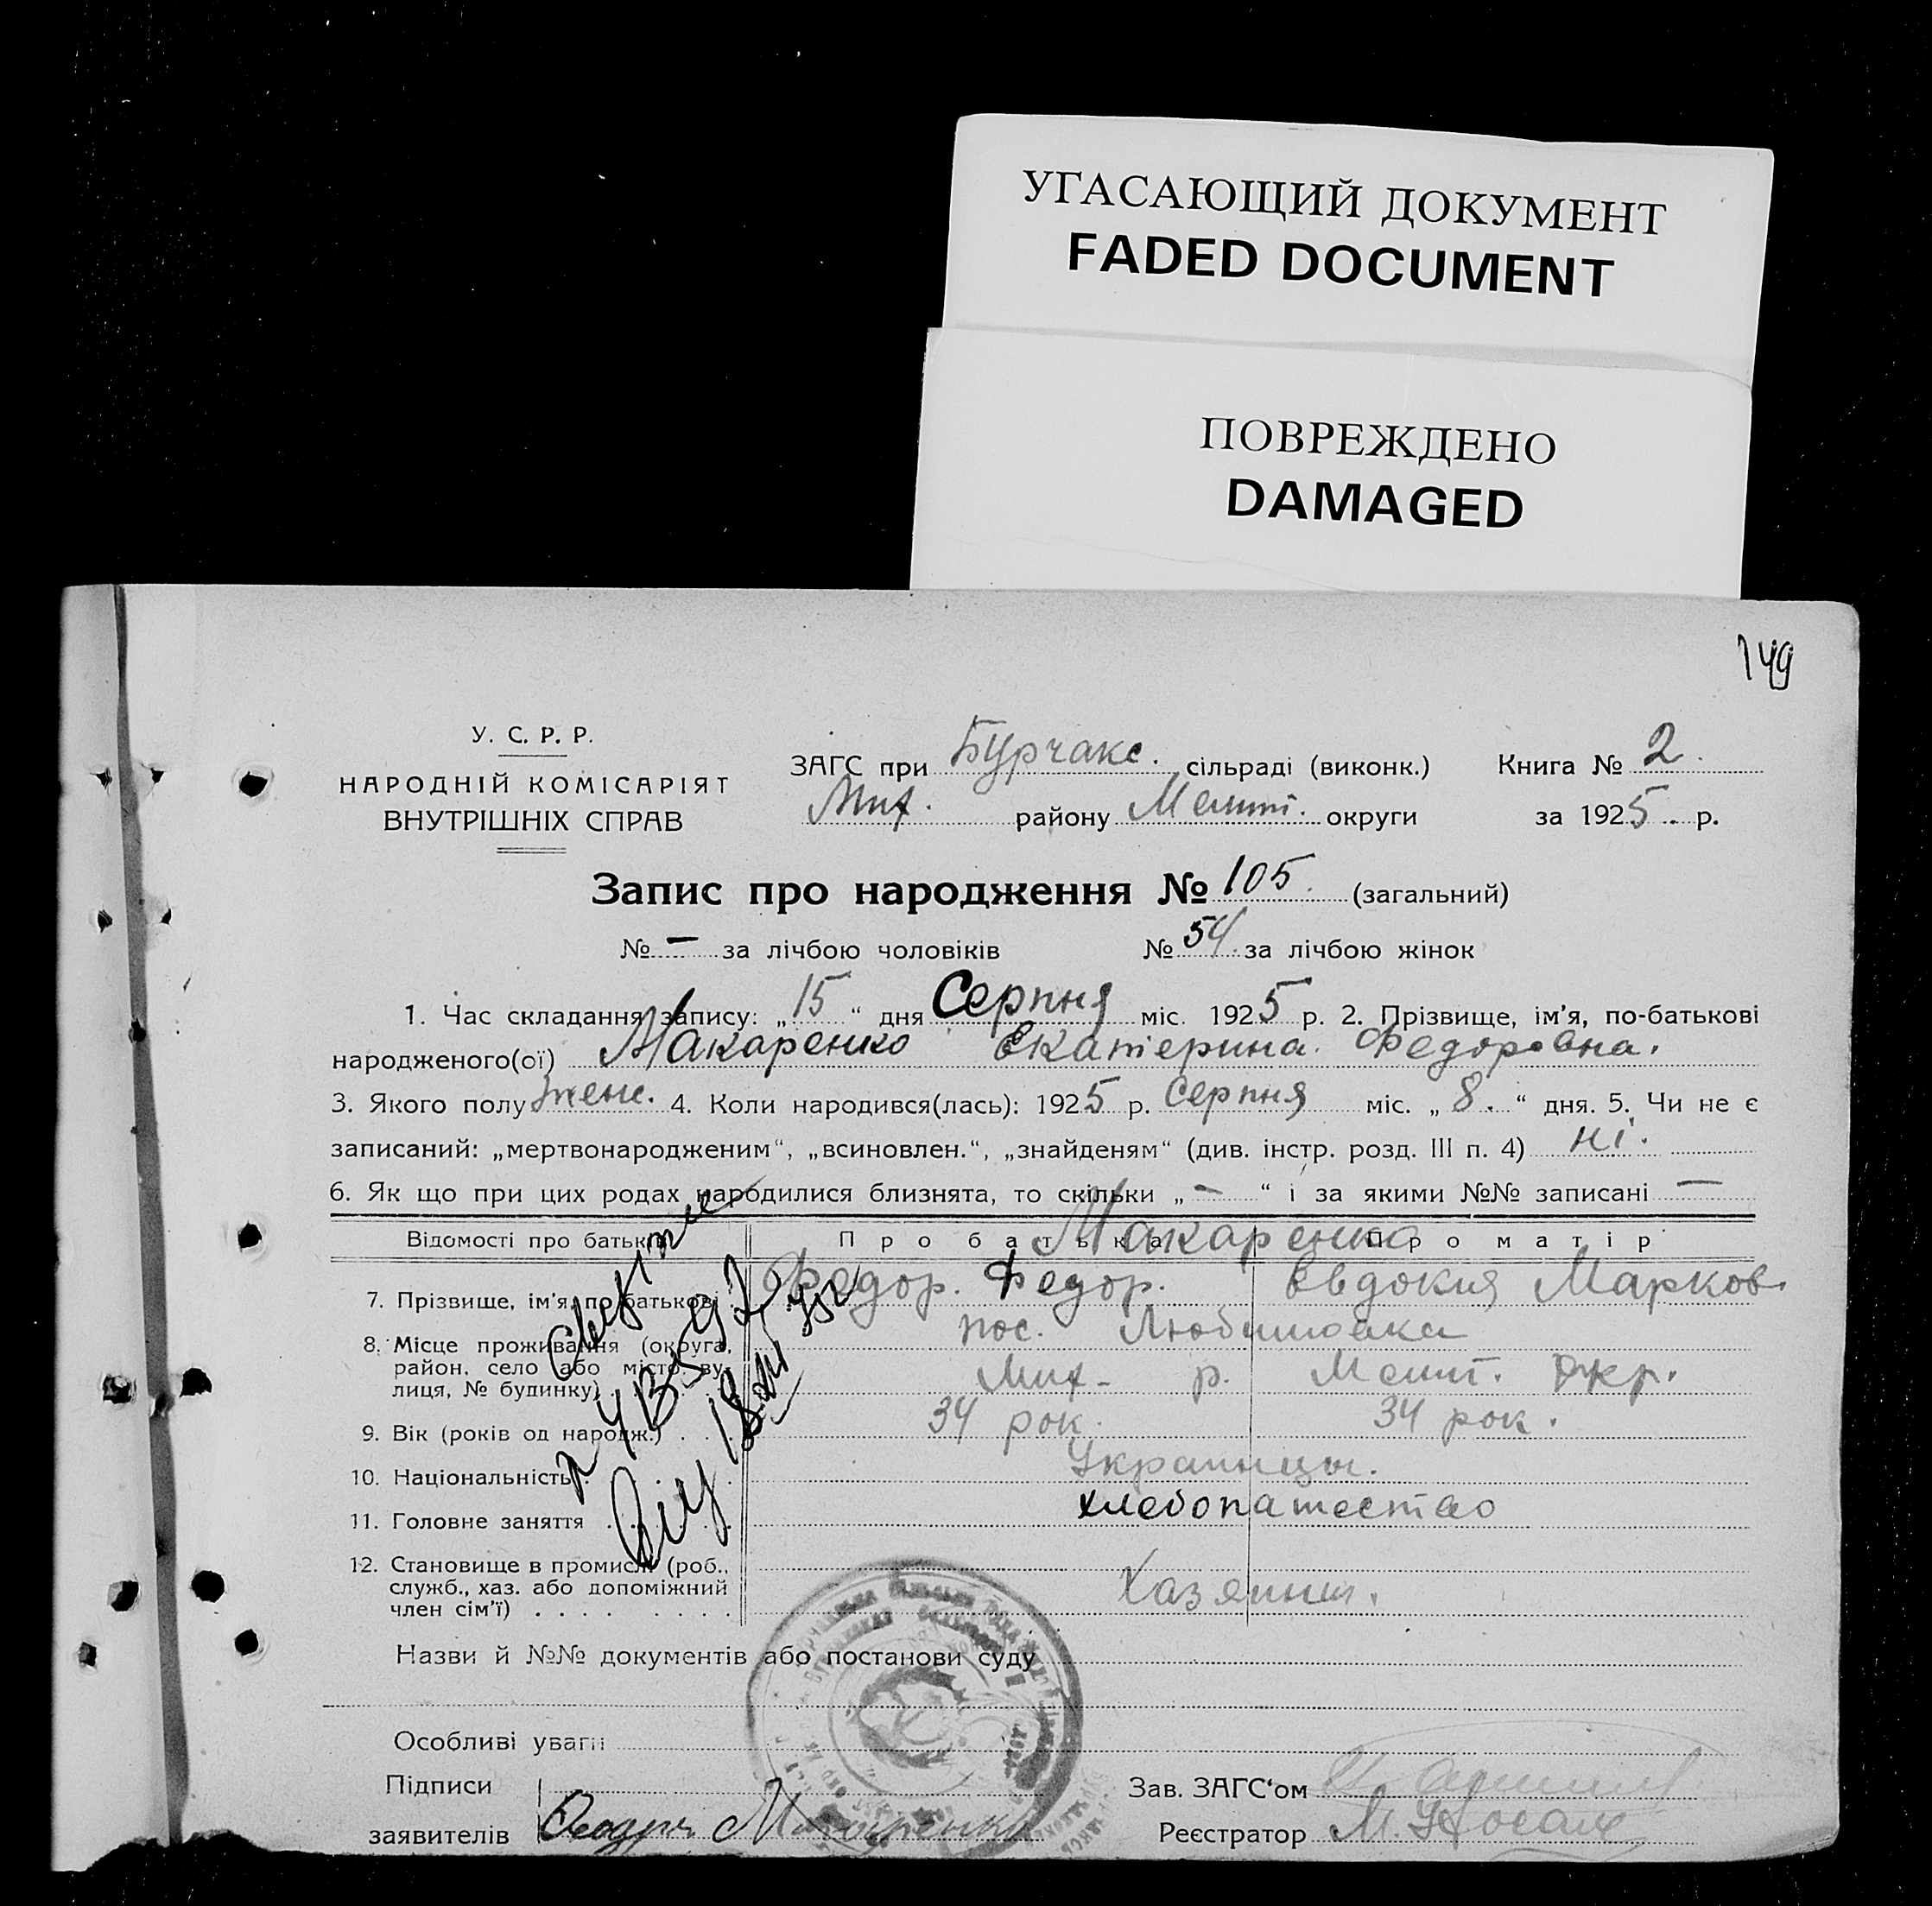 УГАСАЮЩИЙ ДОКУМЕНТ
FADED DOCUMENT
ПОВРЕЖДЕНО
DAMAGED
149
У. С. Р. Р.
НАРОДНІЙ КОМІСАРІЯТ
ВНУТРІШНІХ СПРАВ
ЗАГС при Бурчакс. сільраді (виконк.) Книга № 2.
Мих. району Мелит. округи за 1925 р.
Запис про народження № 105. (загальний)
№ — за лічбою чоловіків № 54. за лічбою жінок
1. Час складання запису: „15“ дня Серпня міс. 1925 р. 2. Прізвище, ім’я, по-батькові
народженого(ої) Макаренко Екатерина. Федоровна.
3. Якого полу женс. 4. Коли народився(лась): 1925 р. Серпня міс. „8.“ дня. 5. Чи не є
записаний: „мертвонародженим“, „всиновлен.“, „знайденям“ (див. інстр. розд. III п. 4) ні.
6. Як що при цих родах народилися близнята, то скільки „—“ і за якими №№ записані —
Відомості про батьків Про батька Про матір
Макаренко
7. Прізвище, ім’я, по батькові Федор. Федор. Евдокия Марков.
8. Місце проживання (округа, пос. Любимовка
район, село або місто, ву-
лиця, № будинку) Мих- р. Мелит. Окр.
9. Вік (років од народж.) 34 рок. 34 рок.
10. Національність Украинцы.
11. Головне заняття хлебопашество
12. Становище в промислі (роб.,
служб., хаз. або допоміжний Хазяини.
член сім’ї)
Назви й №№ документів або постанови суду
Особливі уваги
Підписи
заявителів Макаренко
Зав. ЗАГС‘ом
Реєстратор М.